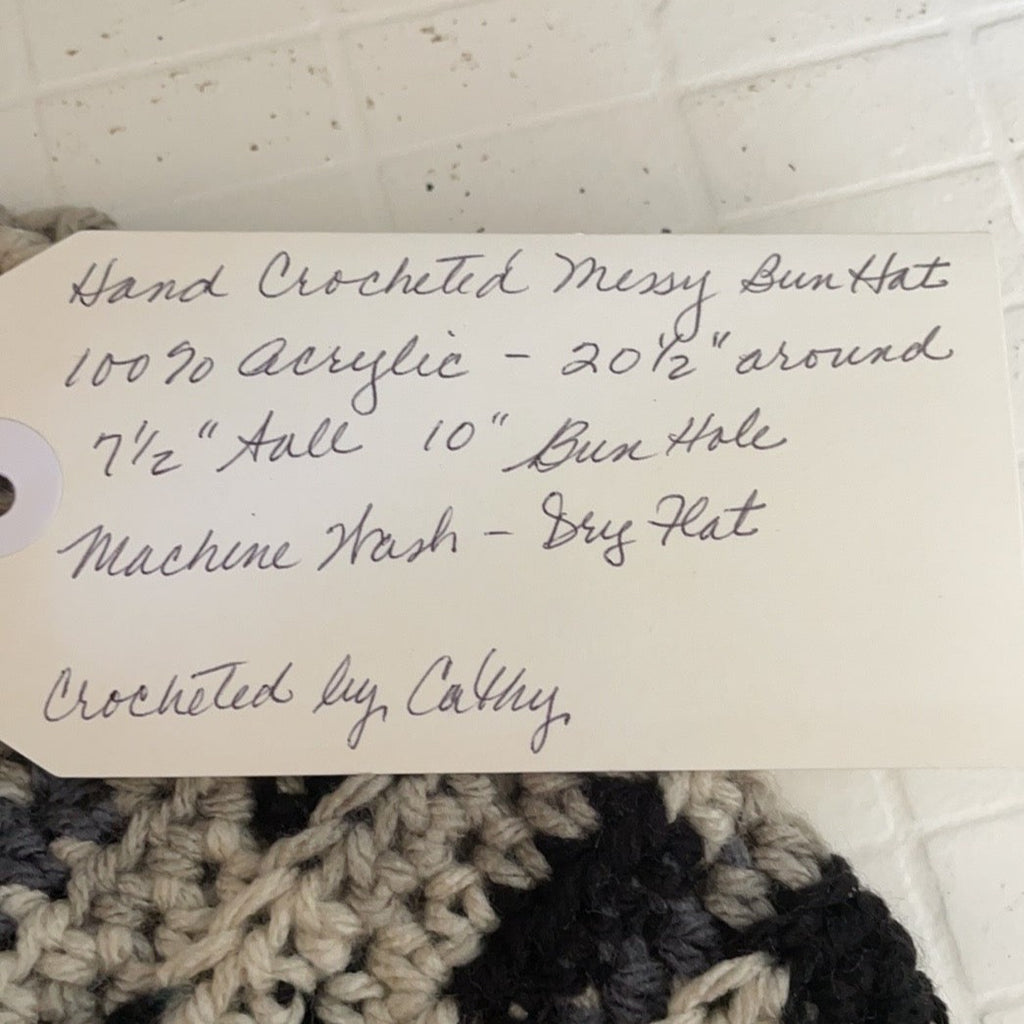 Hand Crocheted Messy Bun Hat
100% Acrylic - 20 1/2" around
7 1/2" Tall 10" Bun Hole
Machine Wash - Dry Flat
Crocheted by Cathy